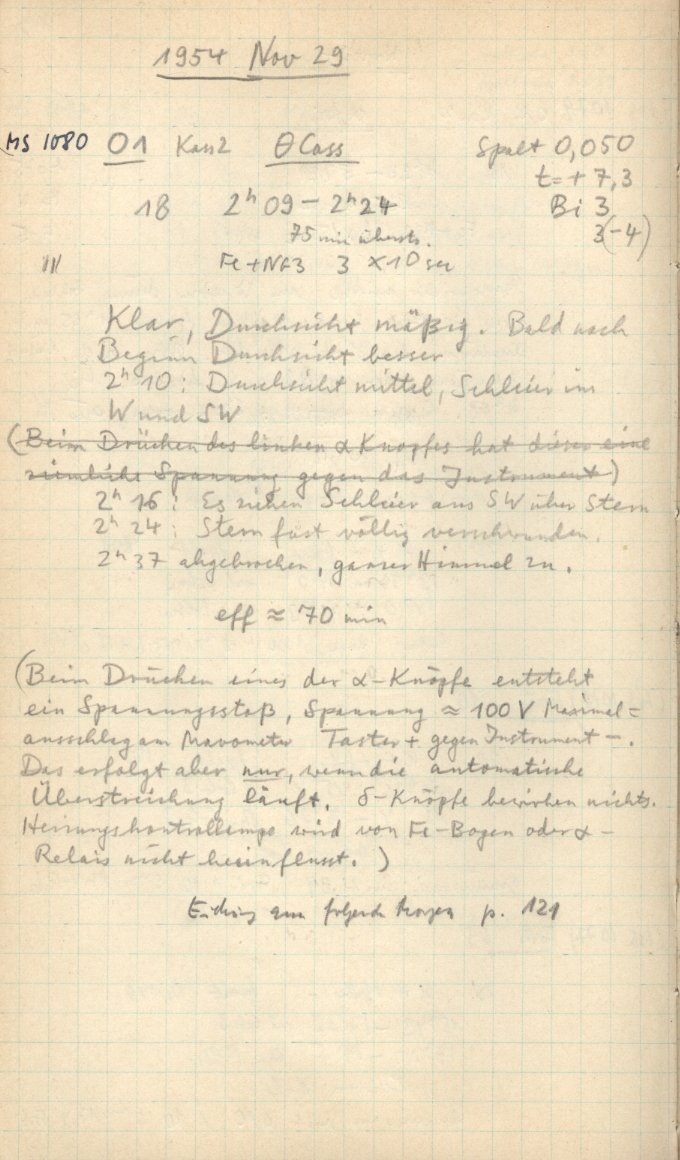 1954 Nov 29
MS 1080 O1 Kass2 θ Cass Spalt 0,050
t = + 7,3
18 2ʰ 09 – 2ʰ 24 Bi 3
75 min überstr. 3(-4)
III Fe + N 3 3 × 10 sec
Klar, Durchsicht mäßig. Bald nach
Beginn Durchsicht besser
2ʰ 10: Durchsicht mittel, Schleier im
W und SW
(Beim Drücken des linken α Knopfes hat dieser eine
ziemliche Spannung gegen das Instrument)
2ʰ 16: Es ziehen Schleier aus SW über Stern
2ʰ 24: Stern fast völlig verschwunden.
2ʰ 37 abgebrochen, ganzer Himmel zu.
eff ≈ 70 min
(Beim Drücken eines der α-Knöpfe entsteht
ein Spannungsstoß, Spannung ≈ 100 V Maximal=
ausschlag am Mavometer Taster + gegen Instrument –.
Das erfolgt aber nur, wenn die automatische
Überstreichung läuft. δ-Knöpfe bewirken nichts.
Heizungskontrollampe wird von Fe-Bogen oder α-
Relais nicht beeinflusst.)
Eichung am folgende Morgen p. 121